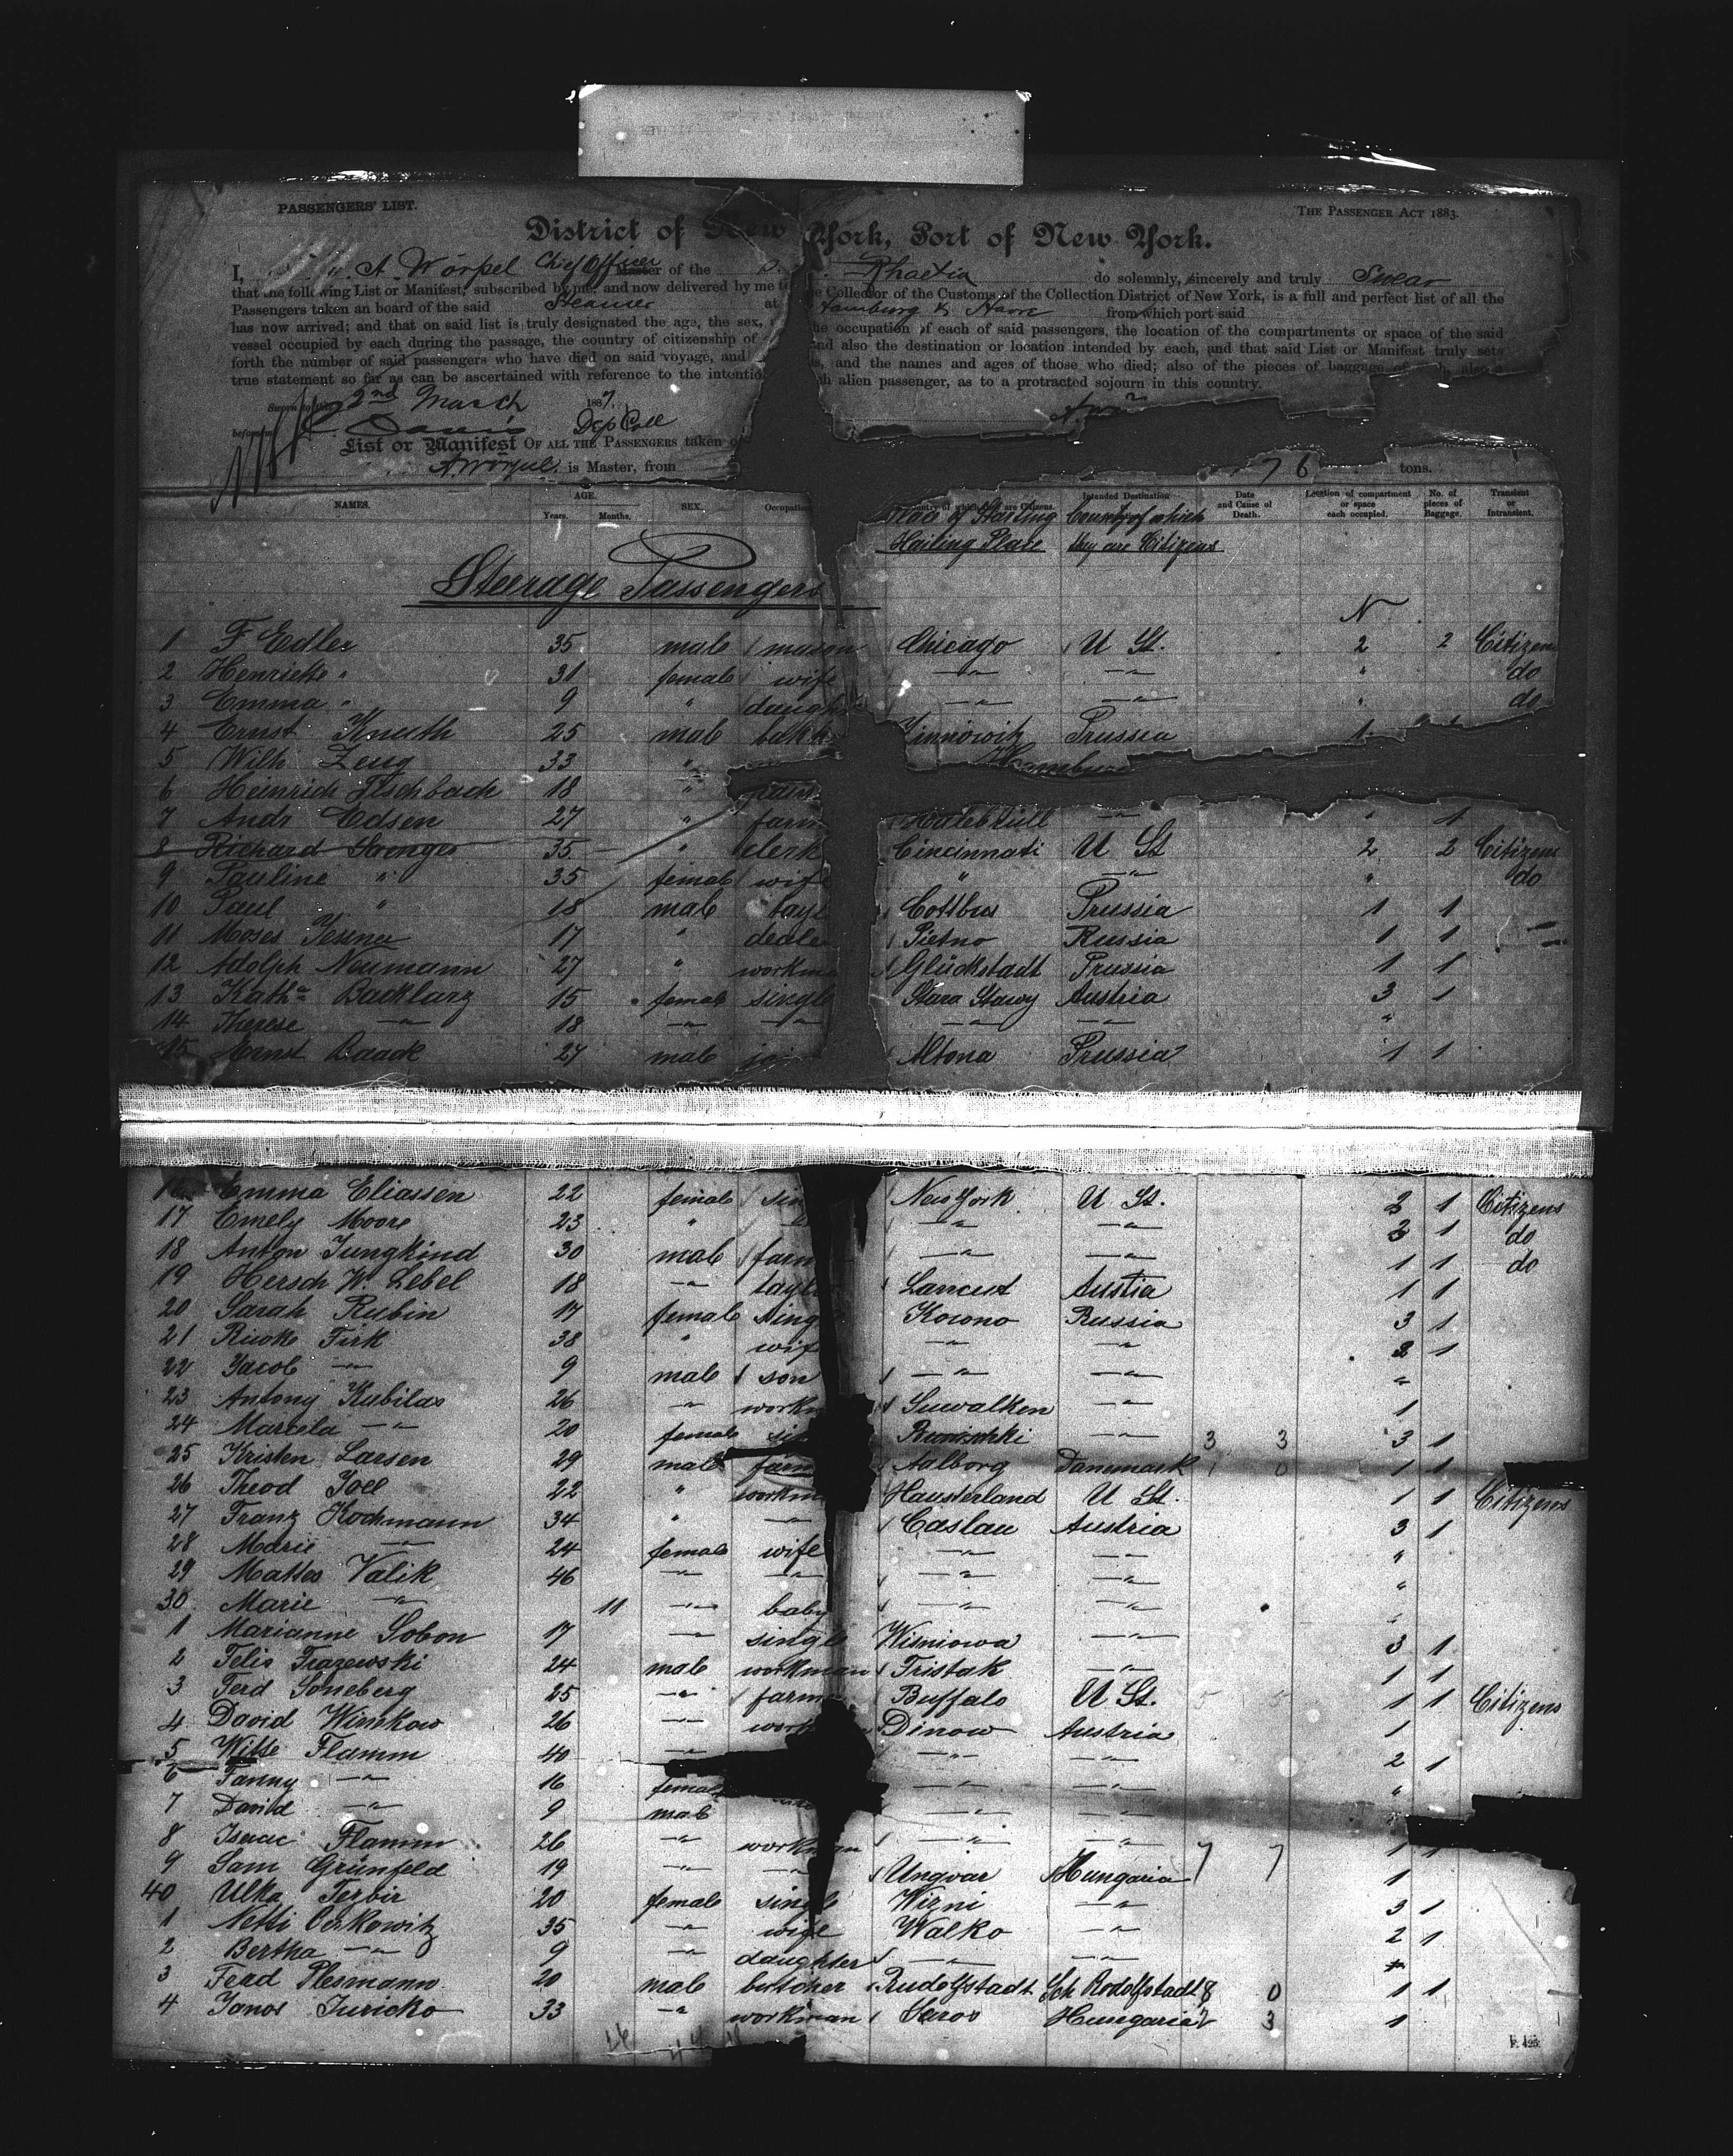 PASSENGERS' LIST.
THE PASSENGER ACT 1883.
District of New York, Port of New York.
I, A. Wörpel Chief Officer Master of the Rhaetia do solemnly, sincerely and truly Swear
that the following List or Manifest, subscribed by me, and now delivered by me to the Collector of the Customs of the Collection District of New York, is a full and perfect list of all the
Passengers taken on board of the said Steamer at Hamburg & Havre from which port said
has now arrived; and that on said list is truly designated the age, the sex, the occupation of each of said passengers, the location of the compartments or space of the said
vessel occupied by each during the passage, the country of citizenship of and also the destination or location intended by each, and that said List or Manifest truly sets
forth the number of said passengers who have died on said voyage, and and the names and ages of those who died; also of the pieces of baggage of each, also a
true statement so far as can be ascertained with reference to the intention alien passenger, as to a protracted sojourn in this country.
Sworn to 2nd March 1887.
before Dep Coll
List or Manifest OF ALL THE PASSENGERS taken
is Master, from 76 tons.
NAMES. AGE. Years. Months. SEX. Occupation Country of which they are Citizens. Intended Destination Date and Cause of Death. Location of compartment or space each occupied. No. of pieces of Baggage. Transient or Intransient.
Place of Starting Country of which
Hailing Place they are Citizens
Steerage Passengers
N
1 F Edler 35 male mason Chicago U St. 2 2 Citizens
2 Henriette " 31 female wife " " " do
3 Emma " 9 " daught " " " do
4 Ernst Knuth 25 male Zinnowitz Prussia 1
5 Wilh Zeug 33 " Hamburg
6 Heinrich Fischbach 18 "
7 Andr Edsen 27 " farm " " 1
8 Richard Srenger 35 " clerk Cincinnati U St 2 2 Citizens
9 Pauline " 35 female wife " " " do
10 Paul " 18 male tayl Cottbus Prussia 1 1
11 Moses Jessna 17 " deale Pietno Russia 1 1
12 Adolph Neumann 27 " workma Glückstadt Prussia 1 1
13 Katha Backlarz 15 female single Stara Stawy Austria 3 1
14 Therese " 18 " " " " "
15 Ernst Baack 27 male joi Altona Prussia 1 1
16 Emma Eliassen 22 female sin New York U St. 3 1 Citizens
17 Emely Moore 23 " " " 3 1 do
18 Anton Jungkind 30 male farm " " 1 1 do
19 Hersch W. Lebel 18 " taylo Lancut Austia 1 1
20 Sarah Rubin 17 female sing Kowno Russia 3 1
21 Rivke Firk 38 " wife " " 2 1
22 Jacob " 9 male son " " "
23 Antony Kubilas 26 " workm Suwalken " 1
24 Marcela " 20 female sin " 3 3 3 1
25 Kristen Larsen 29 male farm Aalborg Danemark 1 0 1 1
26 Theod Joel 22 " workm Hausterland U St. 1 1 Citizens
27 Franz Hochmann 34 " " Caslau Austria 3 1
28 Marie " 24 female wife " " "
29 Mattes Valik 46 " " " " "
30 Marie " 11 " baby " " "
1 Marianne Sobon 17 " single Wisniowa " 3 1
2 Felix Frazewski 24 male workman Fristak " 1 1
3 Ferd Soneberg 25 " farm Buffalo U St. 5 5 1 1 Citizens
4 David Winskow 26 " work Dinow Austria 1
5 Witte Flamm 40 " " " 2 1
6 Fanny " 16 female " " "
7 David " 9 male " "
8 Isaac Flamm 26 " workman " " 7 7 1 1
9 Sam Grünfeld 19 " " Ungvar Hungaria 1
40 Ulka Tezbir 20 female single Wizni " 3 1
1 Netti 35 " wife Walko " 2 1
2 Bertha " 9 " daughter " " "
3 Ferd Plesmann 20 male butcher Rudolfstadt Sch Rodolfstadt 8 0 1 1
4 Janos Juricko 33 " workman Saros Hungaria 2 3 1